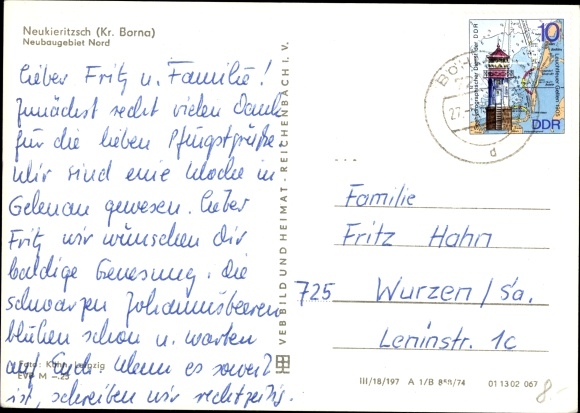 Neukieritzsch (Kr. Borna)
Neubaugebiet Nord
Lieber Fritz u. Familie!
Zunächst recht vielen Dank
für die lieben Pfingstgrüße
Wir sind eine Woche in
Gelenau gewesen. Lieber
Fritz wir wünschen Dir
baldige Genesung. Die
schwarzen Johannisbeeren
blühen schon u. warten
auf Euch. Wenn es soweit
ist, schreiben wir rechtzeitig.
Foto: Kühn, Leipzig
EVP M –.25
VEB BILD UND HEIMAT · REICHENBACH I. V.
10
DDR
27.
d
Familie
Fritz Hahn
725 Wurzen / Sa.
Leninstr. 1c
III/18/197 A 1/B 858/74 01 13 02 067
8.-